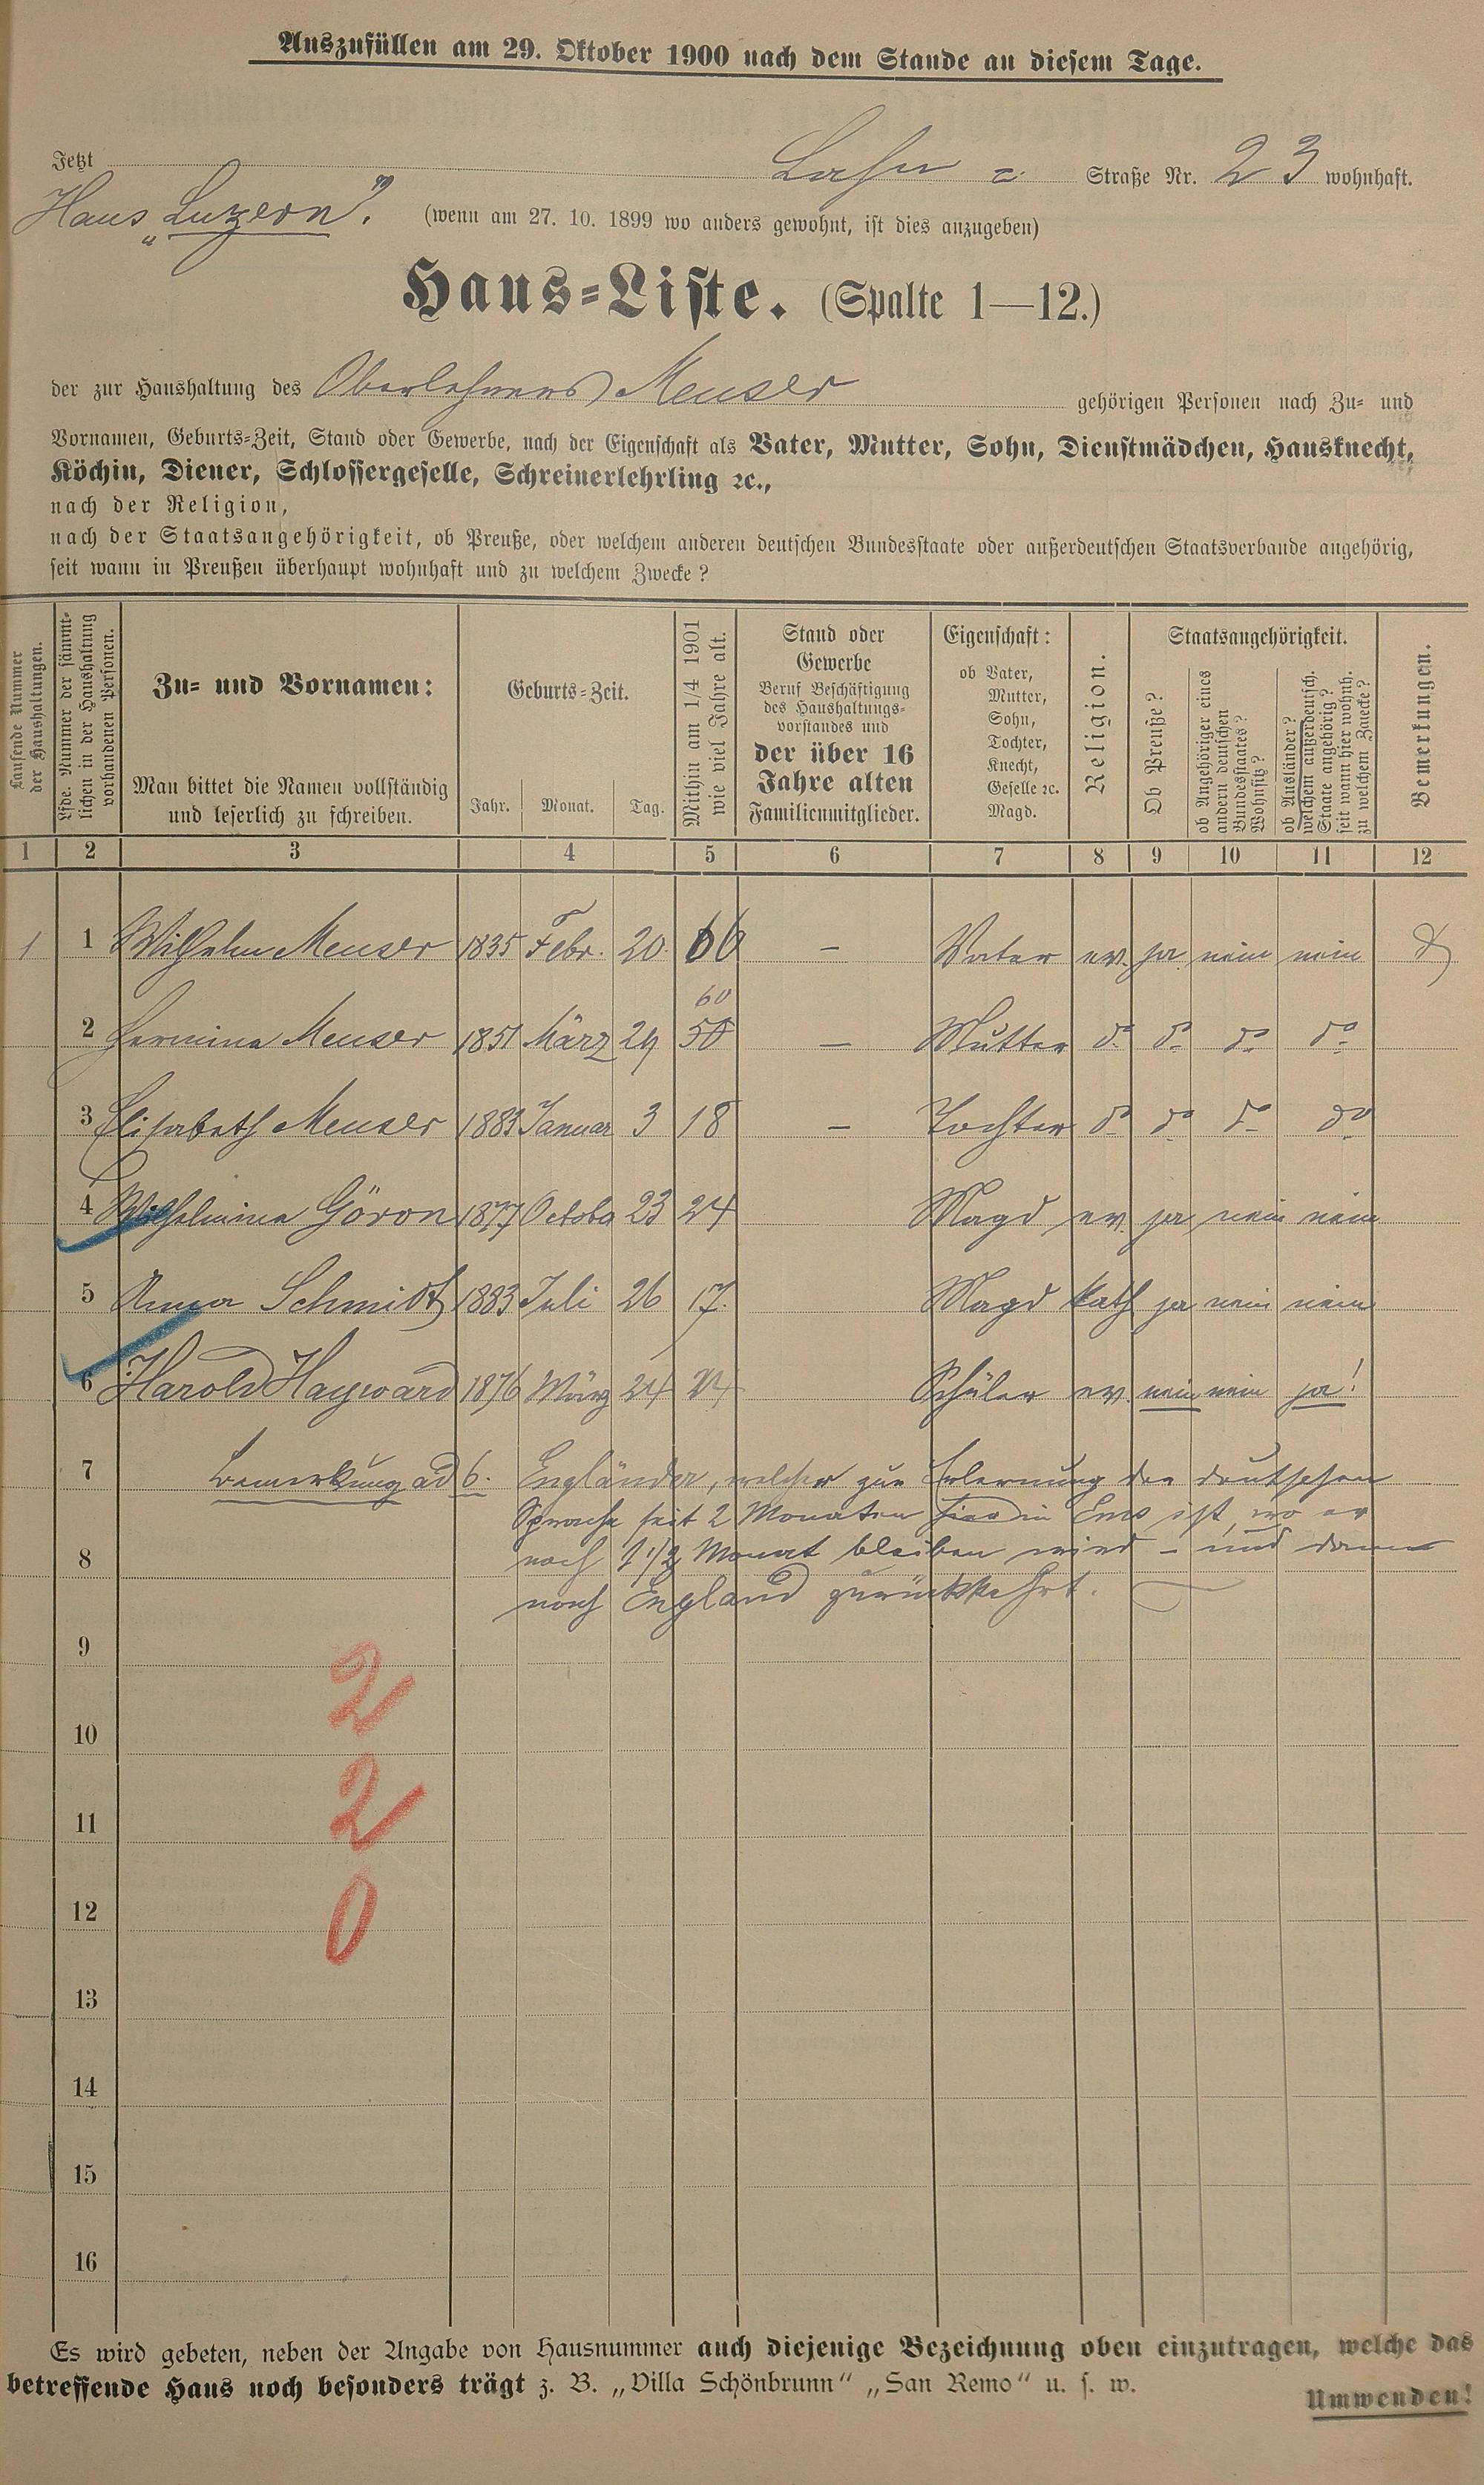 Auszufüllen am 29. Oktober 1900 nach dem Stande an diesem Tage.
Jetzt Lahn = Straße Nr. 23 wohnhaft.
Haus „Luzern“. (wenn am 27. 10. 1899 wo anders gewohnt, ist dies anzugeben)
Haus-Liste. (Spalte 1—12.)
der zur Haushaltung des Oberlehrers Menser gehörigen Personen nach Zu- und
Vornamen, Geburts-Zeit, Stand oder Gewerbe, nach der Eigenschaft als Vater, Mutter, Sohn, Dienstmädchen, Hausknecht,
Köchin, Diener, Schlossergeselle, Schreinerlehrling ꝛc.,
nach der Religion,
nach der Staatsangehörigkeit, ob Preuße, oder welchem anderen deutschen Bundesstaate oder außerdeutschen Staatsverbande angehörig,
seit wann in Preußen überhaupt wohnhaft und zu welchem Zwecke?
Laufende Nummer
der Haushaltungen.
Lfde. Nummer der sämmt-
lichen in der Haushaltung
vorhandenen Personen.
Zu- und Vornamen:
Man bittet die Namen vollständig
und leserlich zu schreiben.
Geburts-Zeit.
Jahr. Monat. Tag.
Mithin am 1/4 1901
wie viel Jahre alt.
Stand oder
Gewerbe
Beruf Beschäftigung
des Haushaltungs-
vorstandes und
der über 16
Jahre alten
Familienmitglieder.
Eigenschaft:
ob Vater,
Mutter,
Sohn,
Tochter,
Knecht,
Geselle ꝛc.
Magd.
Religion.
Staatsangehörigkeit.
Ob Preuße?
ob Angehöriger eines
andern deutschen
Bundesstaates?
Wohnsitz?
ob Ausländer?
welchem außerdeutsch.
Staate angehörig?
seit wann hier wohnh.
zu welchem Zwecke?
Bemerkungen.
1 2 3 4 5 6 7 8 9 10 11 12
1 1 Wilhelm Menser 1835 Febr. 20. 66 – Vater ev. ja nein nein
60
2 Hermine Menser 1851 März 29 50 – Mutter do do do do
3 Elisabeth Menser 1883 Januar 3 18 – Tochter do do do do
4 Wilhelmina Göron 1877 October 23 24 Magd ev. ja nein nein
5 Anna Schmidt 1883 Juli 26 17. Magd kath ja nein nein
6 Harold Hayward 1876 März 24 24 Schüler ev. nein nein ja!
7 Bemerkung ad 6. Engländer, welcher zur Erlernung der deutschen
Sprache seit 2 Monaten hier in Ems ist, wo er
8 noch 1 1/2 Monat bleiben wird – und dann
nach England zurückkehrt.
9
2
10
2
11
12
0
13
14
15
16
Es wird gebeten, neben der Angabe von Hausnummer auch diejenige Bezeichnung oben einzutragen, welche das
betreffende Haus noch besonders trägt z. B. „Villa Schönbrunn“ „San Remo“ u. s. w.
Umwenden!